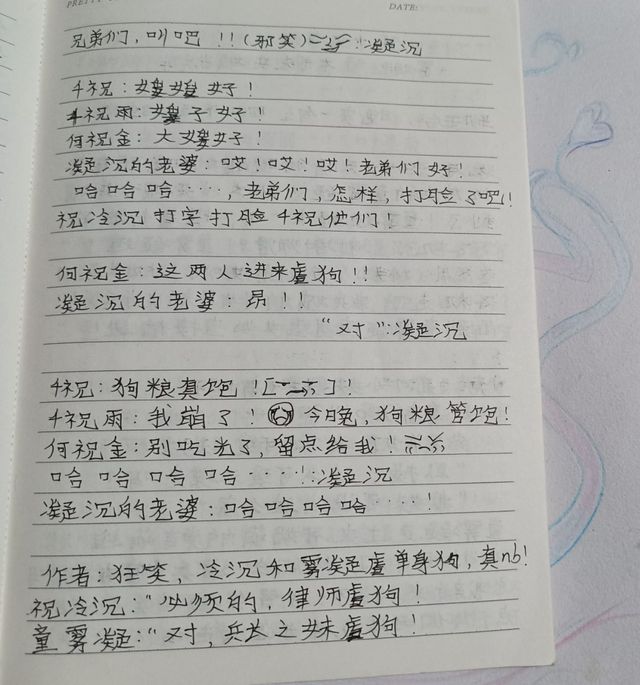 DATE:
兄弟们，叫吧！！（邪笑）：凝沉
4祝：嫂嫂好！
4祝雨：嫂子好！
何祝金：大嫂好！
凝沉的老婆：哎！哎！哎！老弟们好！
哈哈哈····，老弟们，怎样，打脸了吧！
祝冷沉打字打脸4祝他们！
何祝金：这两人进来虐狗！！
凝沉的老婆：昂！！
“对”：凝沉
4祝：狗粮真饱！[ ]！
4祝雨：我崩了！今晚，狗粮管饱！
何祝金：别吃光了，留点给我！
哈哈哈哈····！：凝沉
凝沉的老婆：哈哈哈哈····！
作者：狂笑，冷沉和雾凝虐单身狗，真nb！
祝冷沉：“必须的，律师虐狗！
童雾凝：“对，兵长之妹虐狗！